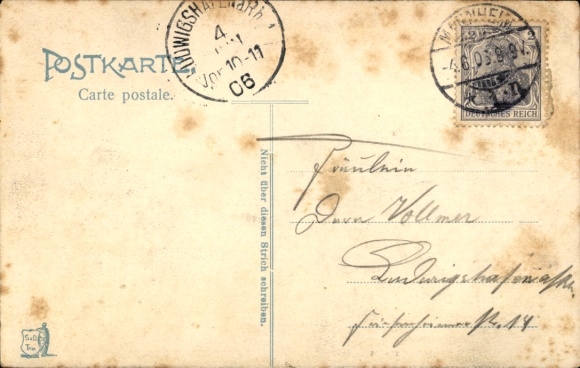 POSTKARTE.
Carte postale.
LUDWIGSHAFEN a. Rh. 1
4
Vor 10-11
06
MANNHEIM
2 2
DEUTSCHES REICH
Nicht über diesen Strich schreiben.
Fräulein
Vollmer
Ludwigshafen
Str. 14